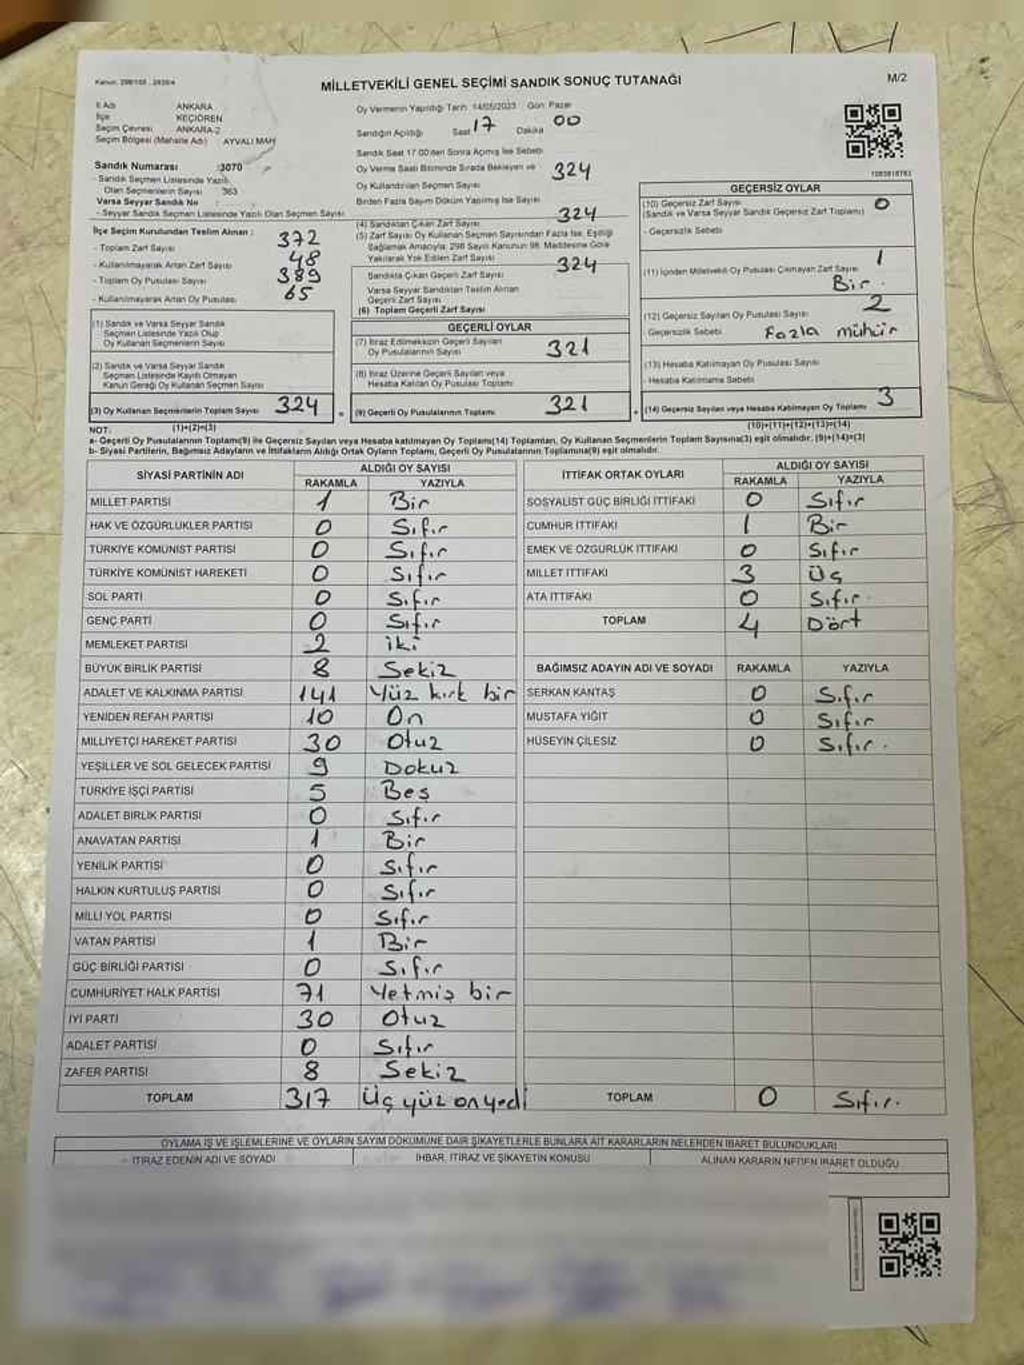 MİLLETVEKİLİ GENEL SEÇİMİ SANDIK SONUÇ TUTANAĞI
M/2
İl Adı ANKARA
İlçe KEÇİÖREN
Seçim Çevresi ANKARA-2
Seçim Bölgesi (Mahalle Adı) AYVALI MAH
Sandık Numarası :3070
- Sandık Seçmen Listesinde Yazılı
Olan Seçmenlerin Sayısı : 363
Varsa Seyyar Sandık No :
- Seyyar Sandık Seçmen Listesinde Yazılı Olan Seçmen Sayısı
Oy Vermenin Yapıldığı Tarih 14/05/2023 Gün: Pazar
Sandığın Açıldığı Saat 17 Dakika 00
Sandık Saat 17.00'den Sonra Açılmış İse Sebebi
Oy Verme Saati Bitiminde Sırada Bekleyen ve 324
Oy Kullandırılan Seçmen Sayısı
Birden Fazla Sayım Döküm Yapılmış İse Sayısı
İlçe Seçim Kurulundan Teslim Alınan :
- Toplam Zarf Sayısı 372
- Kullanılmayarak Artan Zarf Sayısı 48
- Toplam Oy Pusulası Sayısı 389
- Kullanılmayarak Artan Oy Pusulası 65
(1) Sandık ve Varsa Seyyar Sandık
Seçmen Listesinde Yazılı Olup
Oy Kullanan Seçmenlerin Sayısı
(2) Sandık ve Varsa Seyyar Sandık
Seçmen Listesinde Kayıtlı Olmayan
Kanun Gereği Oy Kullanan Seçmen Sayısı
(3) Oy Kullanan Seçmenlerin Toplam Sayısı 324
(4) Sandıktan Çıkan Zarf Sayısı 324
(5) Zarf Sayısı Oy Kullanan Seçmen Sayısından Fazla İse, Eşitliği
Sağlamak Amacıyla; 298 Sayılı Kanunun 98. Maddesine Göre
Yakılarak Yok Edilen Zarf Sayısı
Sandıkta Çıkan Geçerli Zarf Sayısı 324
Varsa Seyyar Sandıktan Teslim Alınan
Geçerli Zarf Sayısı
(6) Toplam Geçerli Zarf Sayısı
GEÇERLİ OYLAR
(7) İtiraz Edilmeksizin Geçerli Sayılan
Oy Pusulalarının Sayısı 321
(8) İtiraz Üzerine Geçerli Sayılan veya
Hesaba Katılan Oy Pusulası Toplamı
= (9) Geçerli Oy Pusulalarının Toplamı 321
GEÇERSİZ OYLAR
(10) Geçersiz Zarf Sayısı 0
(Sandık ve Varsa Seyyar Sandık Geçersiz Zarf Toplamı)
- Geçersizlik Sebebi
(11) İçinden Milletvekili Oy Pusulası Çıkmayan Zarf Sayısı 1
Bir.
(12) Geçersiz Sayılan Oy Pusulası Sayısı 2
Geçersizlik Sebebi Fazla mühür
(13) Hesaba Katılmayan Oy Pusulası Sayısı
- Hesaba Katılmama Sebebi
+ (14) Geçersiz Sayılan veya Hesaba Katılmayan Oy Toplamı 3
NOT: (1)+(2)=(3)
(10)+(11)+(12)+(13)=(14)
a- Geçerli Oy Pusulalarının Toplamı(9) ile Geçersiz Sayılan veya Hesaba katılmayan Oy Toplamı(14) Toplamları, Oy Kullanan Seçmenlerin Toplam Sayısına(3) eşit olmalıdır. (9)+(14)=(3)
b- Siyasi Partilerin, Bağımsız Adayların ve İttifakların Aldığı Ortak Oyların Toplamı, Geçerli Oy Pusulalarının Toplamına(9) eşit olmalıdır.
SİYASİ PARTİNİN ADI ALDIĞI OY SAYISI
RAKAMLA YAZIYLA
MİLLET PARTİSİ 1 Bir
HAK VE ÖZGÜRLÜKLER PARTİSİ 0 Sıfır
TÜRKİYE KOMÜNİST PARTİSİ 0 Sıfır
TÜRKİYE KOMÜNİST HAREKETİ 0 Sıfır
SOL PARTİ 0 Sıfır
GENÇ PARTİ 0 Sıfır
MEMLEKET PARTİSİ 2 iki
BÜYÜK BİRLİK PARTİSİ 8 Sekiz
ADALET VE KALKINMA PARTİSİ 141 Yüz kırk bir
YENİDEN REFAH PARTİSİ 10 On
MİLLİYETÇİ HAREKET PARTİSİ 30 Otuz
YEŞİLLER VE SOL GELECEK PARTİSİ 9 Dokuz
TÜRKİYE İŞÇİ PARTİSİ 5 Beş
ADALET BİRLİK PARTİSİ 0 Sıfır
ANAVATAN PARTİSİ 1 Bir
YENİLİK PARTİSİ 0 Sıfır
HALKIN KURTULUŞ PARTİSİ 0 Sıfır
MİLLİ YOL PARTİSİ 0 Sıfır
VATAN PARTİSİ 1 Bir
GÜÇ BİRLİĞİ PARTİSİ 0 Sıfır
CUMHURİYET HALK PARTİSİ 71 Yetmiş bir
İYİ PARTİ 30 Otuz
ADALET PARTİSİ 0 Sıfır
ZAFER PARTİSİ 8 Sekiz
TOPLAM 317 Üç yüz on yedi
İTTİFAK ORTAK OYLARI ALDIĞI OY SAYISI
RAKAMLA YAZIYLA
SOSYALİST GÜÇ BİRLİĞİ İTTİFAKI 0 Sıfır
CUMHUR İTTİFAKI 1 Bir
EMEK VE ÖZGÜRLÜK İTTİFAKI 0 Sıfır
MİLLET İTTİFAKI 3 Üç
ATA İTTİFAKI 0 Sıfır.
TOPLAM 4 Dört
BAĞIMSIZ ADAYIN ADI VE SOYADI RAKAMLA YAZIYLA
SERKAN KANTAŞ 0 Sıfır
MUSTAFA YİĞİT 0 Sıfır
HÜSEYİN ÇİLESİZ 0 Sıfır.
TOPLAM 0 Sıfır.
OYLAMA İŞ VE İŞLEMLERİNE VE OYLARIN SAYIM DÖKÜMÜNE DAİR ŞİKAYETLERLE BUNLARA AİT KARARLARIN NELERDEN İBARET BULUNDUKLARI
İTİRAZ EDENİN ADI VE SOYADI İHBAR, İTİRAZ VE ŞİKAYETİN KONUSU ALINAN KARARIN NEDEN İBARET OLDUĞU